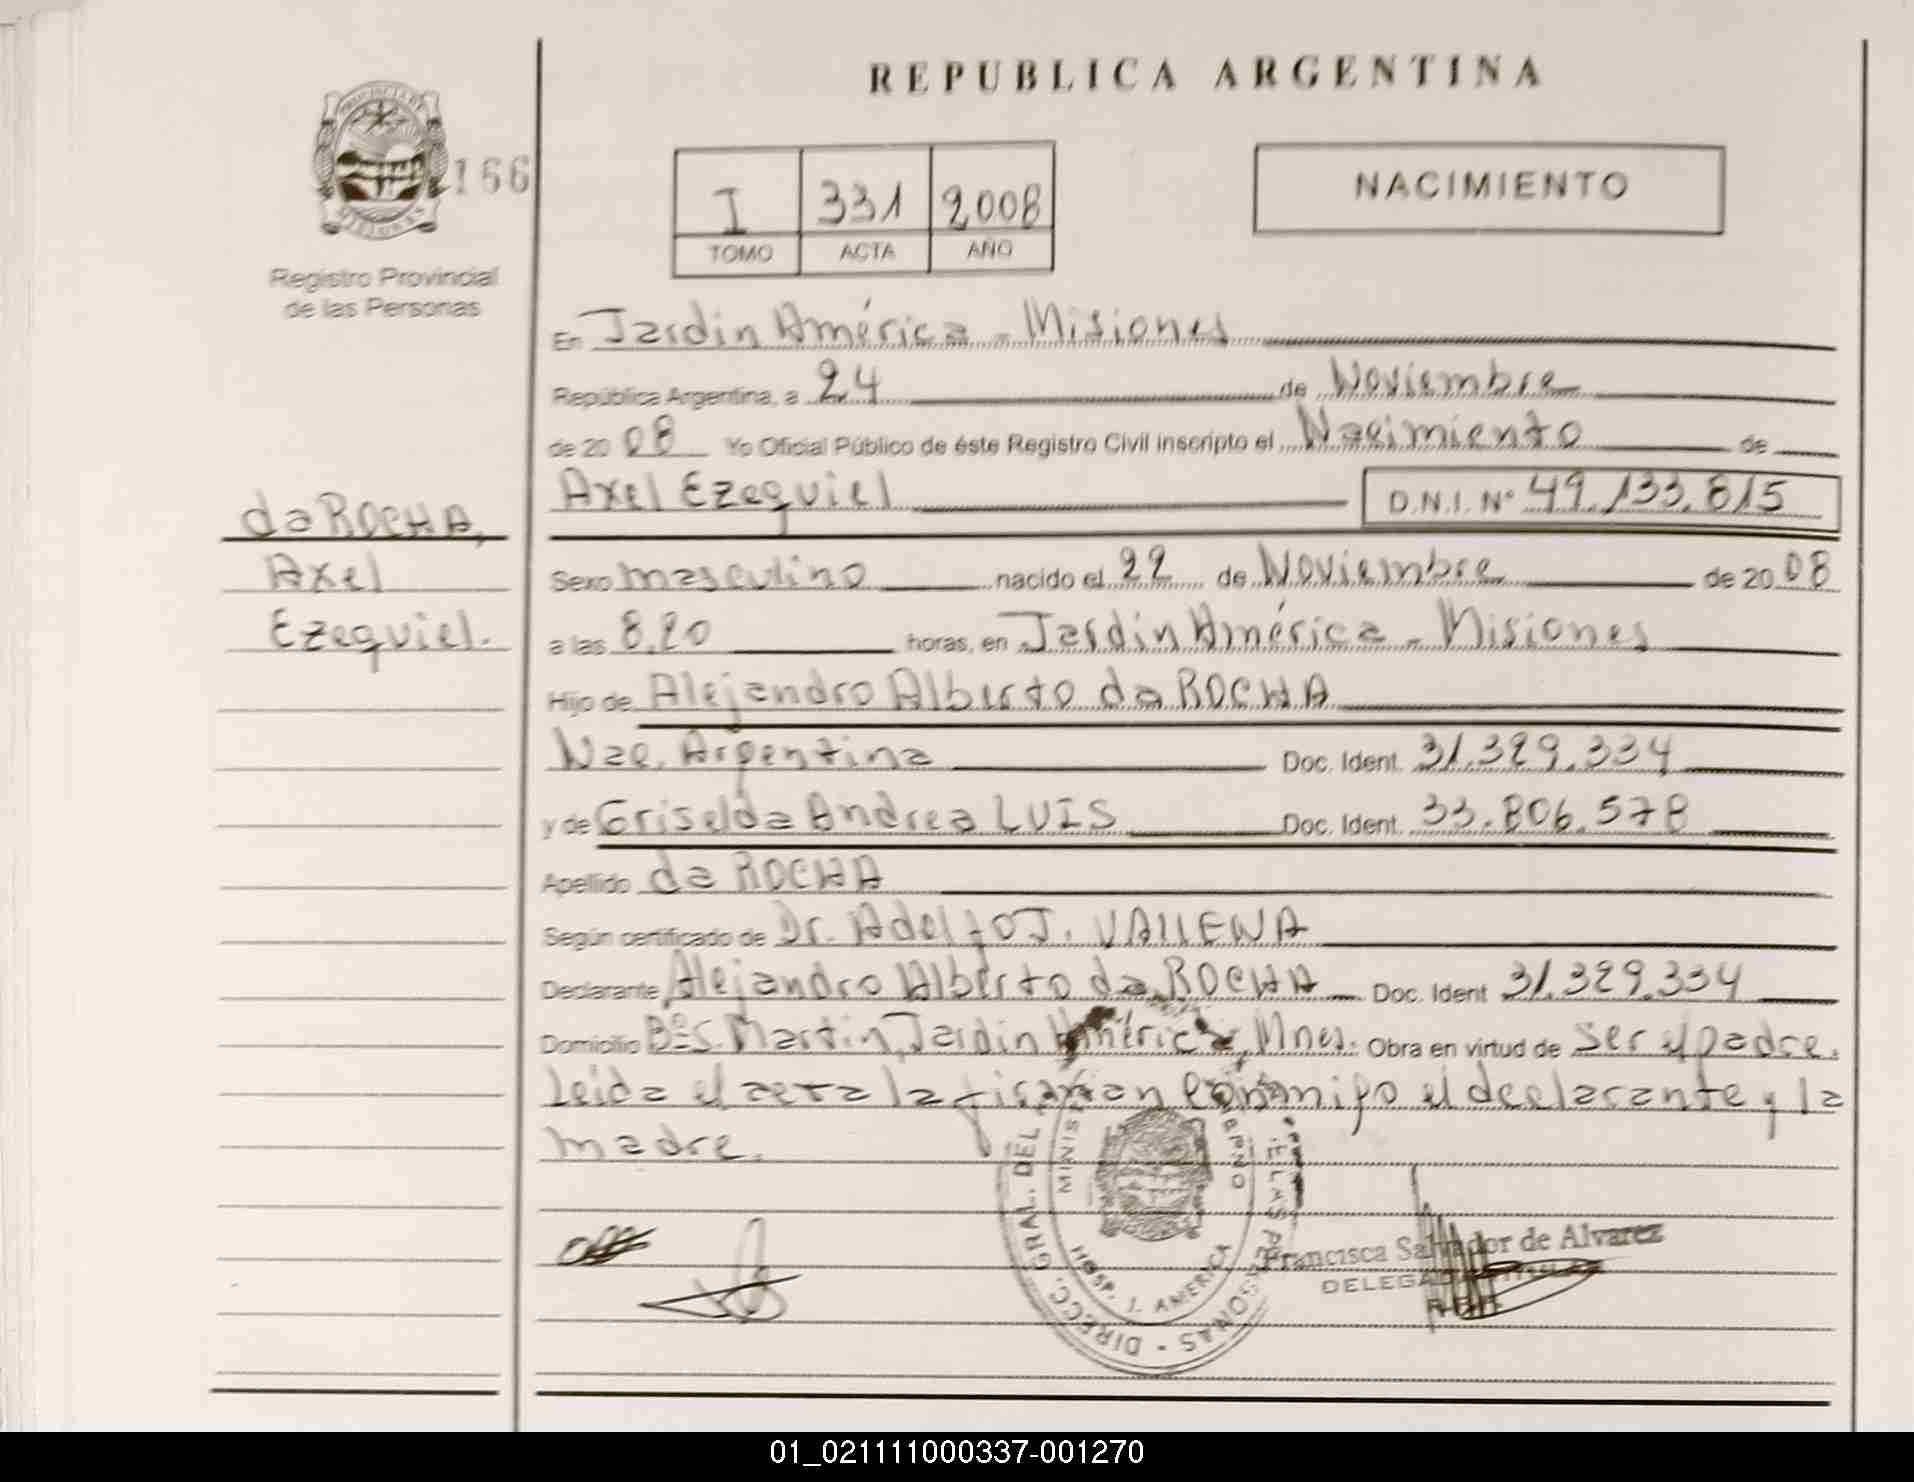 REPUBLICA ARGENTINA
166
I 331 2008
TOMO ACTA AÑO
NACIMIENTO
Registro Provincial
de las Personas
En Jardin América - Misiones
República Argentina, a 24 de Noviembre
de 2008 Yo Oficial Público de éste Registro Civil inscripto el Nacimiento de
Axel Ezequiel D.N.I. Nº 49.133.815
da ROCHA,
Axel
Ezequiel.
Sexo masculino nacido el 22 de Noviembre de 2008
a las 8,20 horas, en Jardin América - Misiones
Hijo de Alejandro Alberto da ROCHA
Nac. Argentina Doc. Ident. 31.329.334
y de Griselda Andrea LUIS Doc. Ident. 33.806.578
Apellido da ROCHA
Según certificado de Dr. Adolfo J. VALLENA
Declarante Alejandro Alberto da ROCHA Doc. Ident 31.329.334
Domicilio Bº S. Martin, Jardin América, Mnes. Obra en virtud de ser el padre.
Leida el acta la firman conmigo el declarante y la
madre.
DIRECC. GRAL. DEL
HOSP. J. AMERICA
Francisca Salvador de Alvarez
01_021111000337-001270